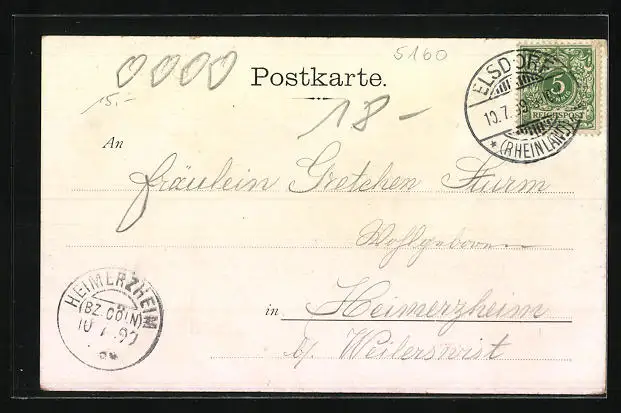 5160
0000
Postkarte.
15.-
18-
ELSDORF
10.7.99
* (RHEINLAND)
5
REICHSPOST
An
Fräulein Gretchen Sturm
Wohlgeboren
HEIMERZHEIM
(BZ. CÖLN)
10 7 99
in Heimerzheim
b/ Weilerswist